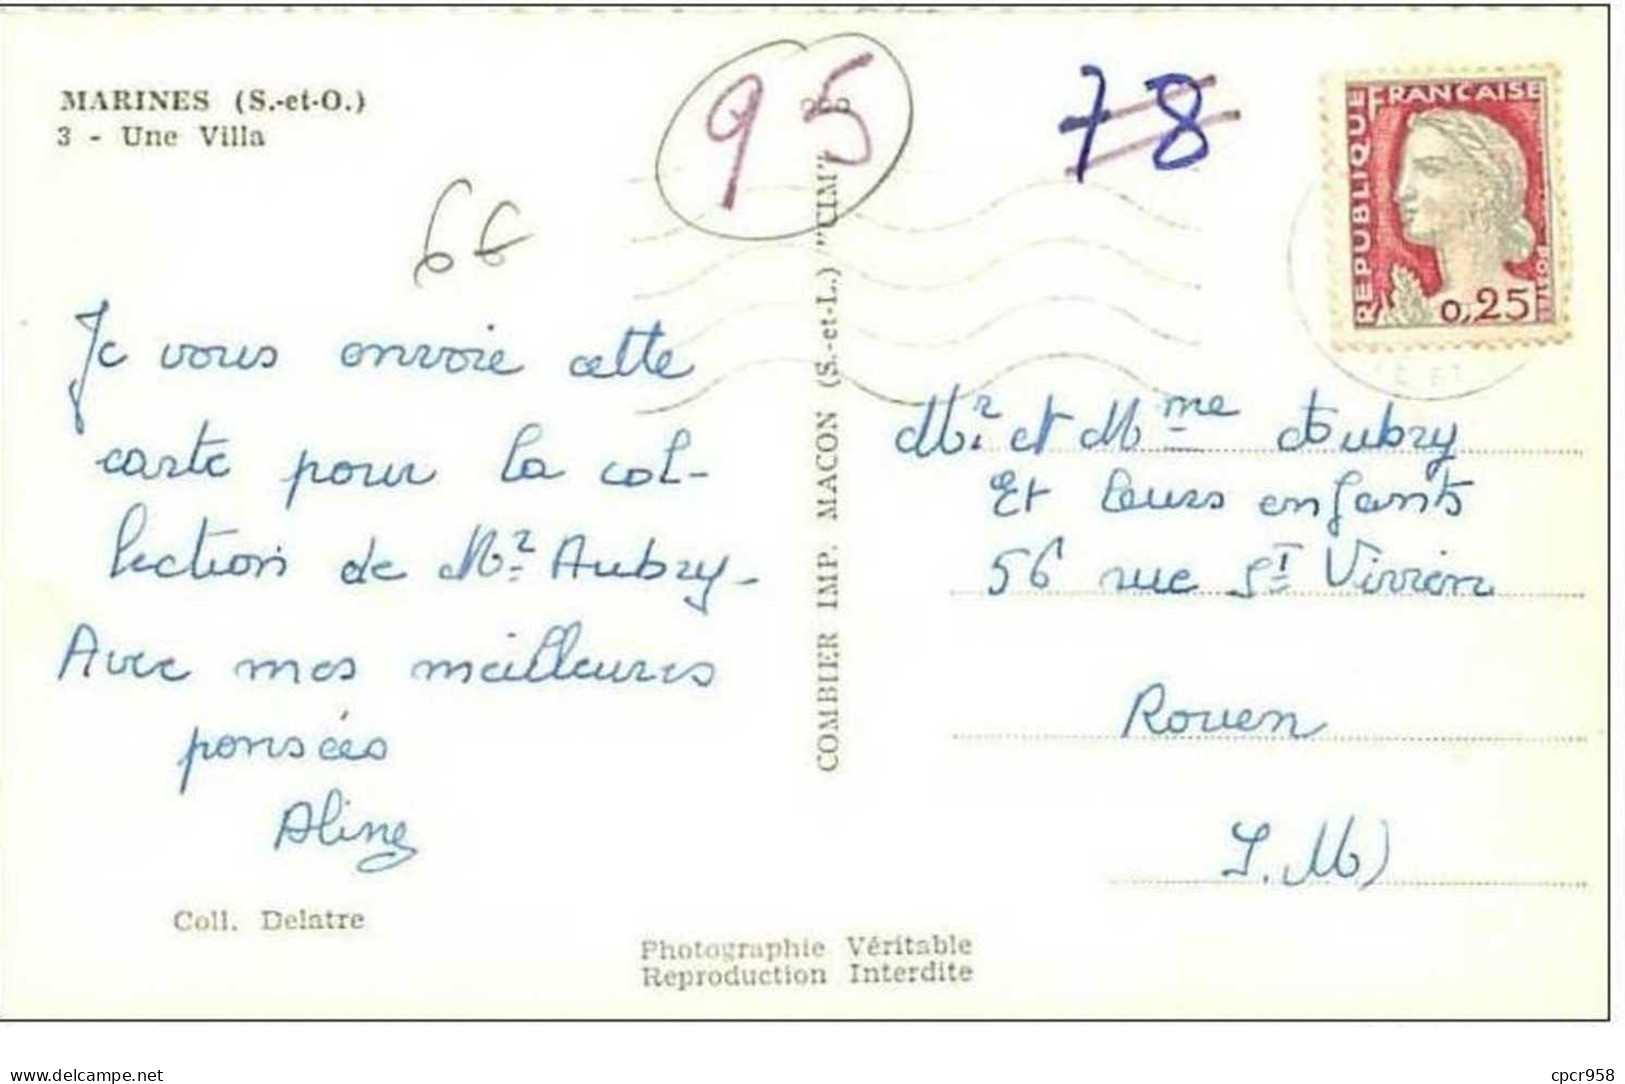 MARINES (S.-et-O.)
3 - Une Villa
95
78
66
REPUBLIQUE FRANCAISE
0,25
Je vous envoie cette
carte pour la col-
lection de Mr Aubry-
Avec mes meilleures
pensées
Aline
Coll. Delatre
COMBIER IMP. MACON (S.-et-L.) "CIM"
Mr. et Mme Aubry
Et leurs enfants
56 rue St Vivien
Rouen
S. M)
Photographie Véritable
Reproduction Interdite
delcampe.net
cpcr958